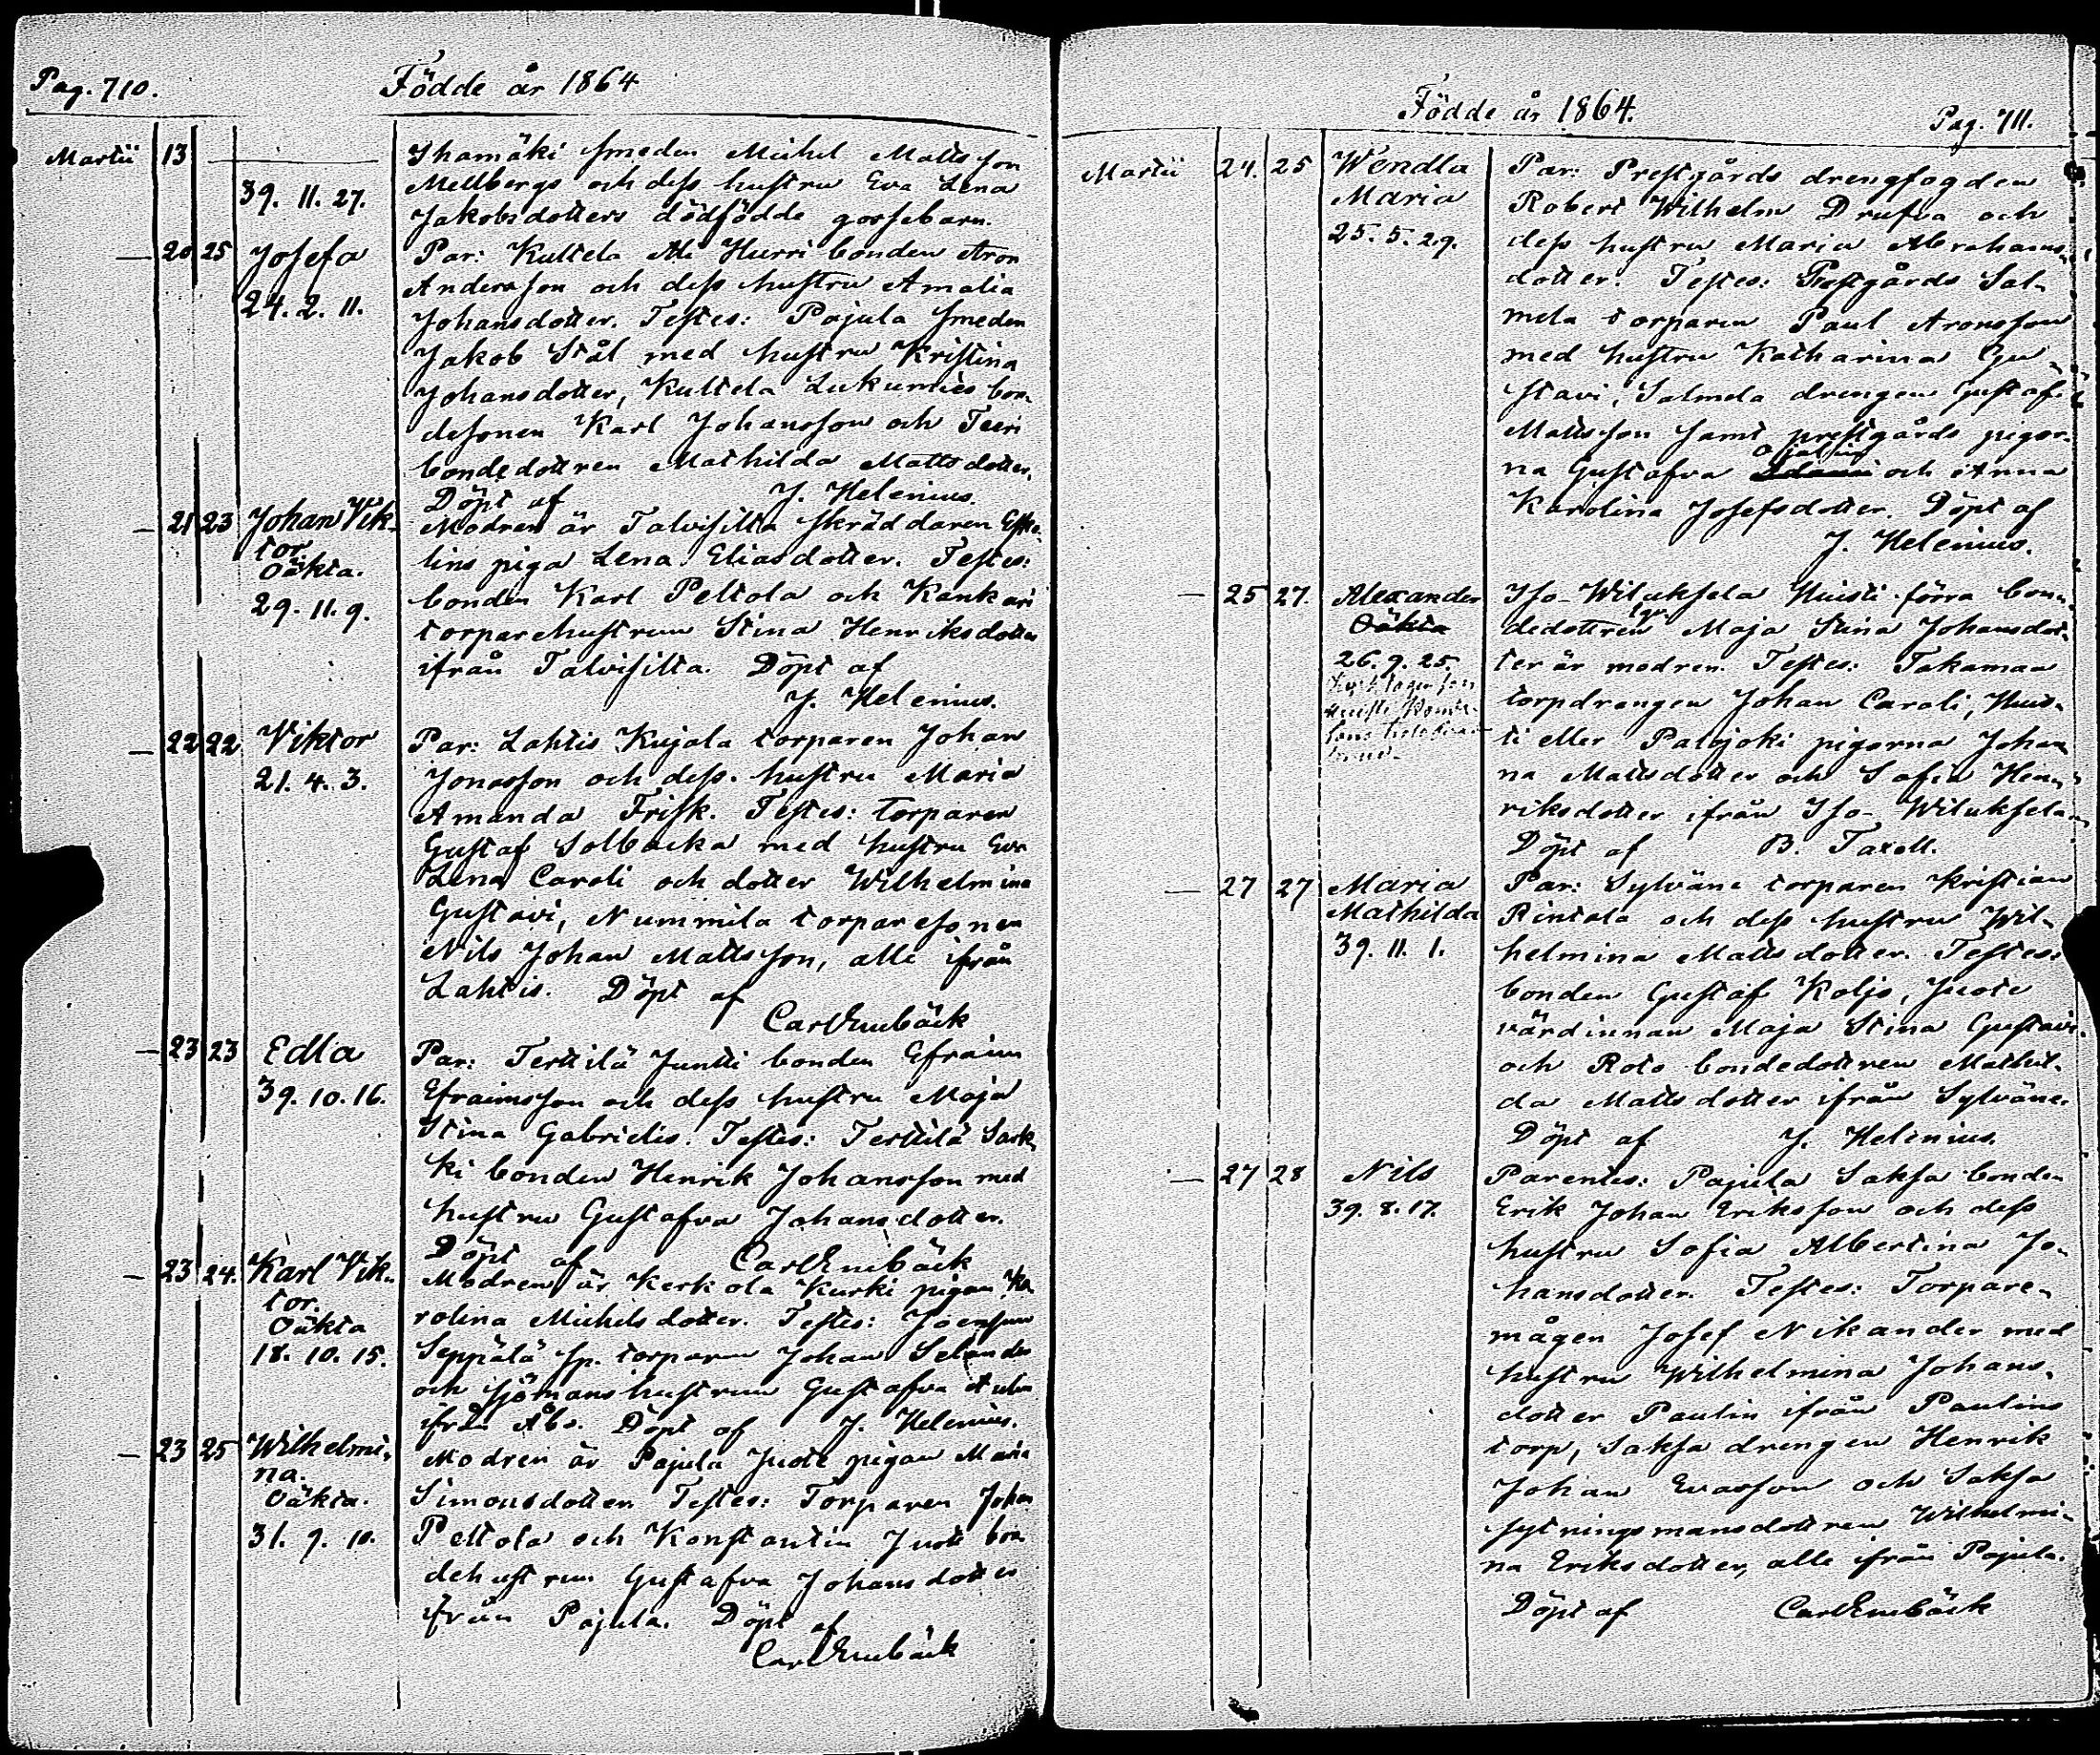 Pag. 710.
Födde år 1864
Martii 13
39. 11. 27.
Ihamäki smeden Michel Matts son
Mellbergs och dess hustru Eva Lena
Jakobsdotters dödfödde gossebarn.
— 20 25 Josefa
24. 2. 11.
Par: Kultela Ali Hurri bonden Aron
Andersson och dess hustru Amalia
Johansdotter. Testes: Pajula smeden
Jakob Stål med hustru Kristina
Johansdotter, Kultela Lukumies bon-
desonen Karl Johansson och Teeri
bondedottren Mathilda Mattsdotter.
Döpt af J. Helenius.
— 21 23 Johan Vik-
tor.
Oäkta.
29. 11. 9.
Modren är Talvisilta skräddaren
lins piga Lena Eliasdotter. Testes:
bonden Karl Peltola och Kankari
torparehustrun Stina Henriksdotter
ifrån Talvisilta. Döpt af
J. Helenius.
— 22 22 Viktor
21. 4. 3.
Par: Lahtis Kujala torparen Johan
Jonasson och dess hustru Maria
Amanda Frisk. Testes: torparen
Gustaf Solbacka med hustru Eva
Lena Caroli och dotter Wilhelmina
Gustavi, Nummila torparesonen
Nils Johan Mattsson, alle ifrån
Lahtis. Döpt af
Carl Embäck
— 23 23 Edla
39. 10. 16.
Par: Terttilä Juntti bonden Efraim
Efraimsson och dess hustru Maja
Stina Gabrielis. Testes: Terttilä Sark-
ki bonden Henrik Johansson med
hustru Gustafva Johansdotter.
Döpt af Carl Embäck
— 23 24. Karl Vik-
tor.
Oäkta
18. 10. 15.
Modren är Kerkola Kurki pigan Ka-
rolina Michelsdotter. Testes: Joensuu
Seppälä sp. torparen Johan Selander
och sjömanshustrun Gustafva
ifrån Åbo. Döpt af J. Helenius.
— 23 25 Wilhelmi-
na.
Oäkta.
31. 7. 10.
Modren är Pajula Juote pigan Maria
Simonsdotter. Testes: Torparen Johan
Peltola och Konstantin Juoti bon-
dehustrun Gustafva Johansdotter
ifrån Pajula. Döpt af
Carl Embäck
Födde år 1864.
Pag. 711.
Martii 24. 25 Wendla
Maria
25. 5. 29.
Par: Prestgårds drengfogden
Robert Wilhelm Drufva och
dess hustru Maria Abrahams-
dotter. Testes: Prestgårds Sal-
mela torparen Paul Aronsson
med hustru Katharina Gu-
stavi, Salmela drengen Gustaf
Mattsson samt prestgårds pigor-
na Gustafva och Anna
Karolina Josefsdotter. Döpt af
J. Helenius.
— 25 27. Alexander
Oäkta
26. 9. 25.
Iso-Wiluksela Huisti förra bon-
dedottren Maja Stina Johansdot-
ter är modren. Testes: Takamaa
torpdrengen Johan Caroli, Huis-
ti eller Palojoki pigorna Johan-
na Mattsdotter och Sofia Hen-
riksdotter ifrån Iso-Wiluksela.
Döpt af B. Taxell.
— 27 27 Maria
Mathilda
39. 11. 1.
Par: Sylväne torparen Kristian
Rintala och dess hustru Wil-
helmina Mattsdotter. Testes:
bonden Gustaf Koljo, Juote
värdinnan Maja Stina Gustavi
och Roto bondedottren Mathil-
da Mattsdotter ifrån Sylväne.
Döpt af J. Helenius.
— 27 28 Nils
39. 8. 17.
Parentes: Pajula Saksa bonden
Erik Johan Eriksson och dess
hustru Sofia Albertina Jo-
hansdotter. Testes: Torpare-
mågen Josef Nikander med
hustru Wilhelmina Johans-
dotter Paulin ifrån Paulins
torp, Saksa drengen Henrik
Johan Evasson och Saksa
sytningsmansdottren Wilhelmi-
na Eriksdotter, alle ifrån Pajula.
Döpt af Carl Embäck